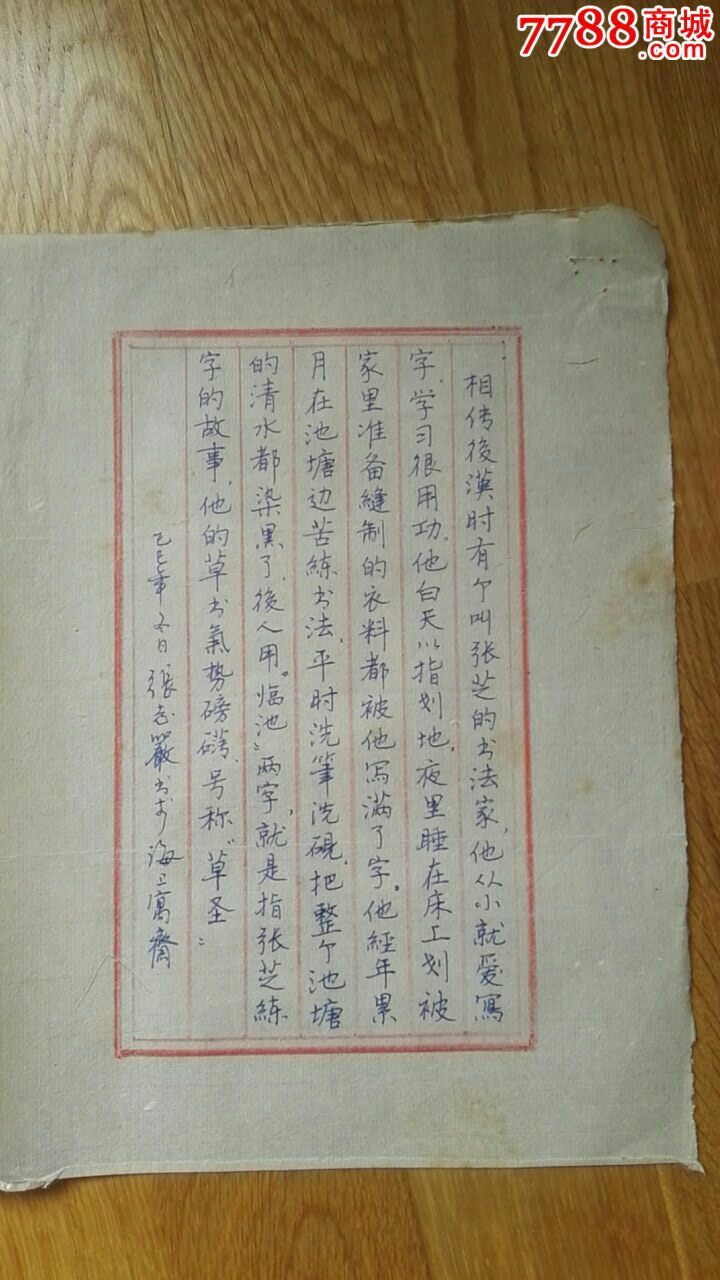 7788商城
.com
相传後漢时有个叫张芝的书法家,他从小就爱寫
字,学习很用功。他白天以指划地,夜里睡在床上划被
家里准备縫制的衣料都被他写满了字。他經年累
月在池塘边苦練书法,平时洗筆洗硯,把整个池塘
的清水都染黑了,後人用“临池”两字,就是指张芝練
字的故事,他的草书氣势磅礴,号称“草圣”
己巳年冬日張志嚴书于海上寓齋